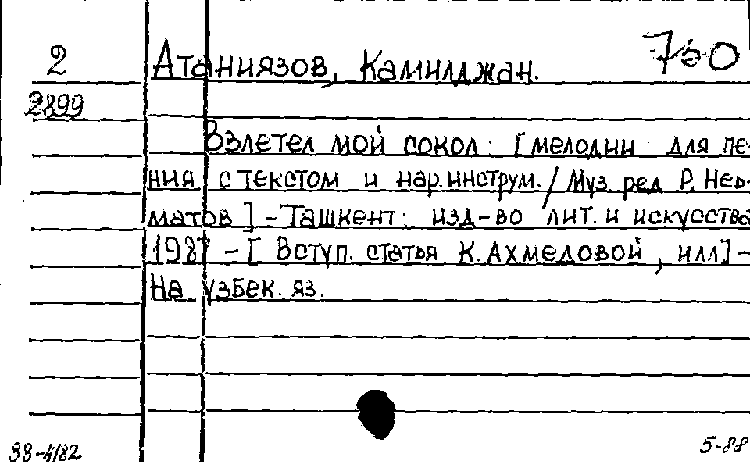 2 Атаниязов, Камилджан. 750
2899
Взлетел мой сокол: [мелодии для пе-
ния с текстом и нар.инструм./Муз. ред Р. Неъ-
матов] - Ташкент: изд-во лит. и искусства
1987 - [Вступ. статья К. Ахмедовой, илл] -
На узбек. яз.
88-4182 5-88